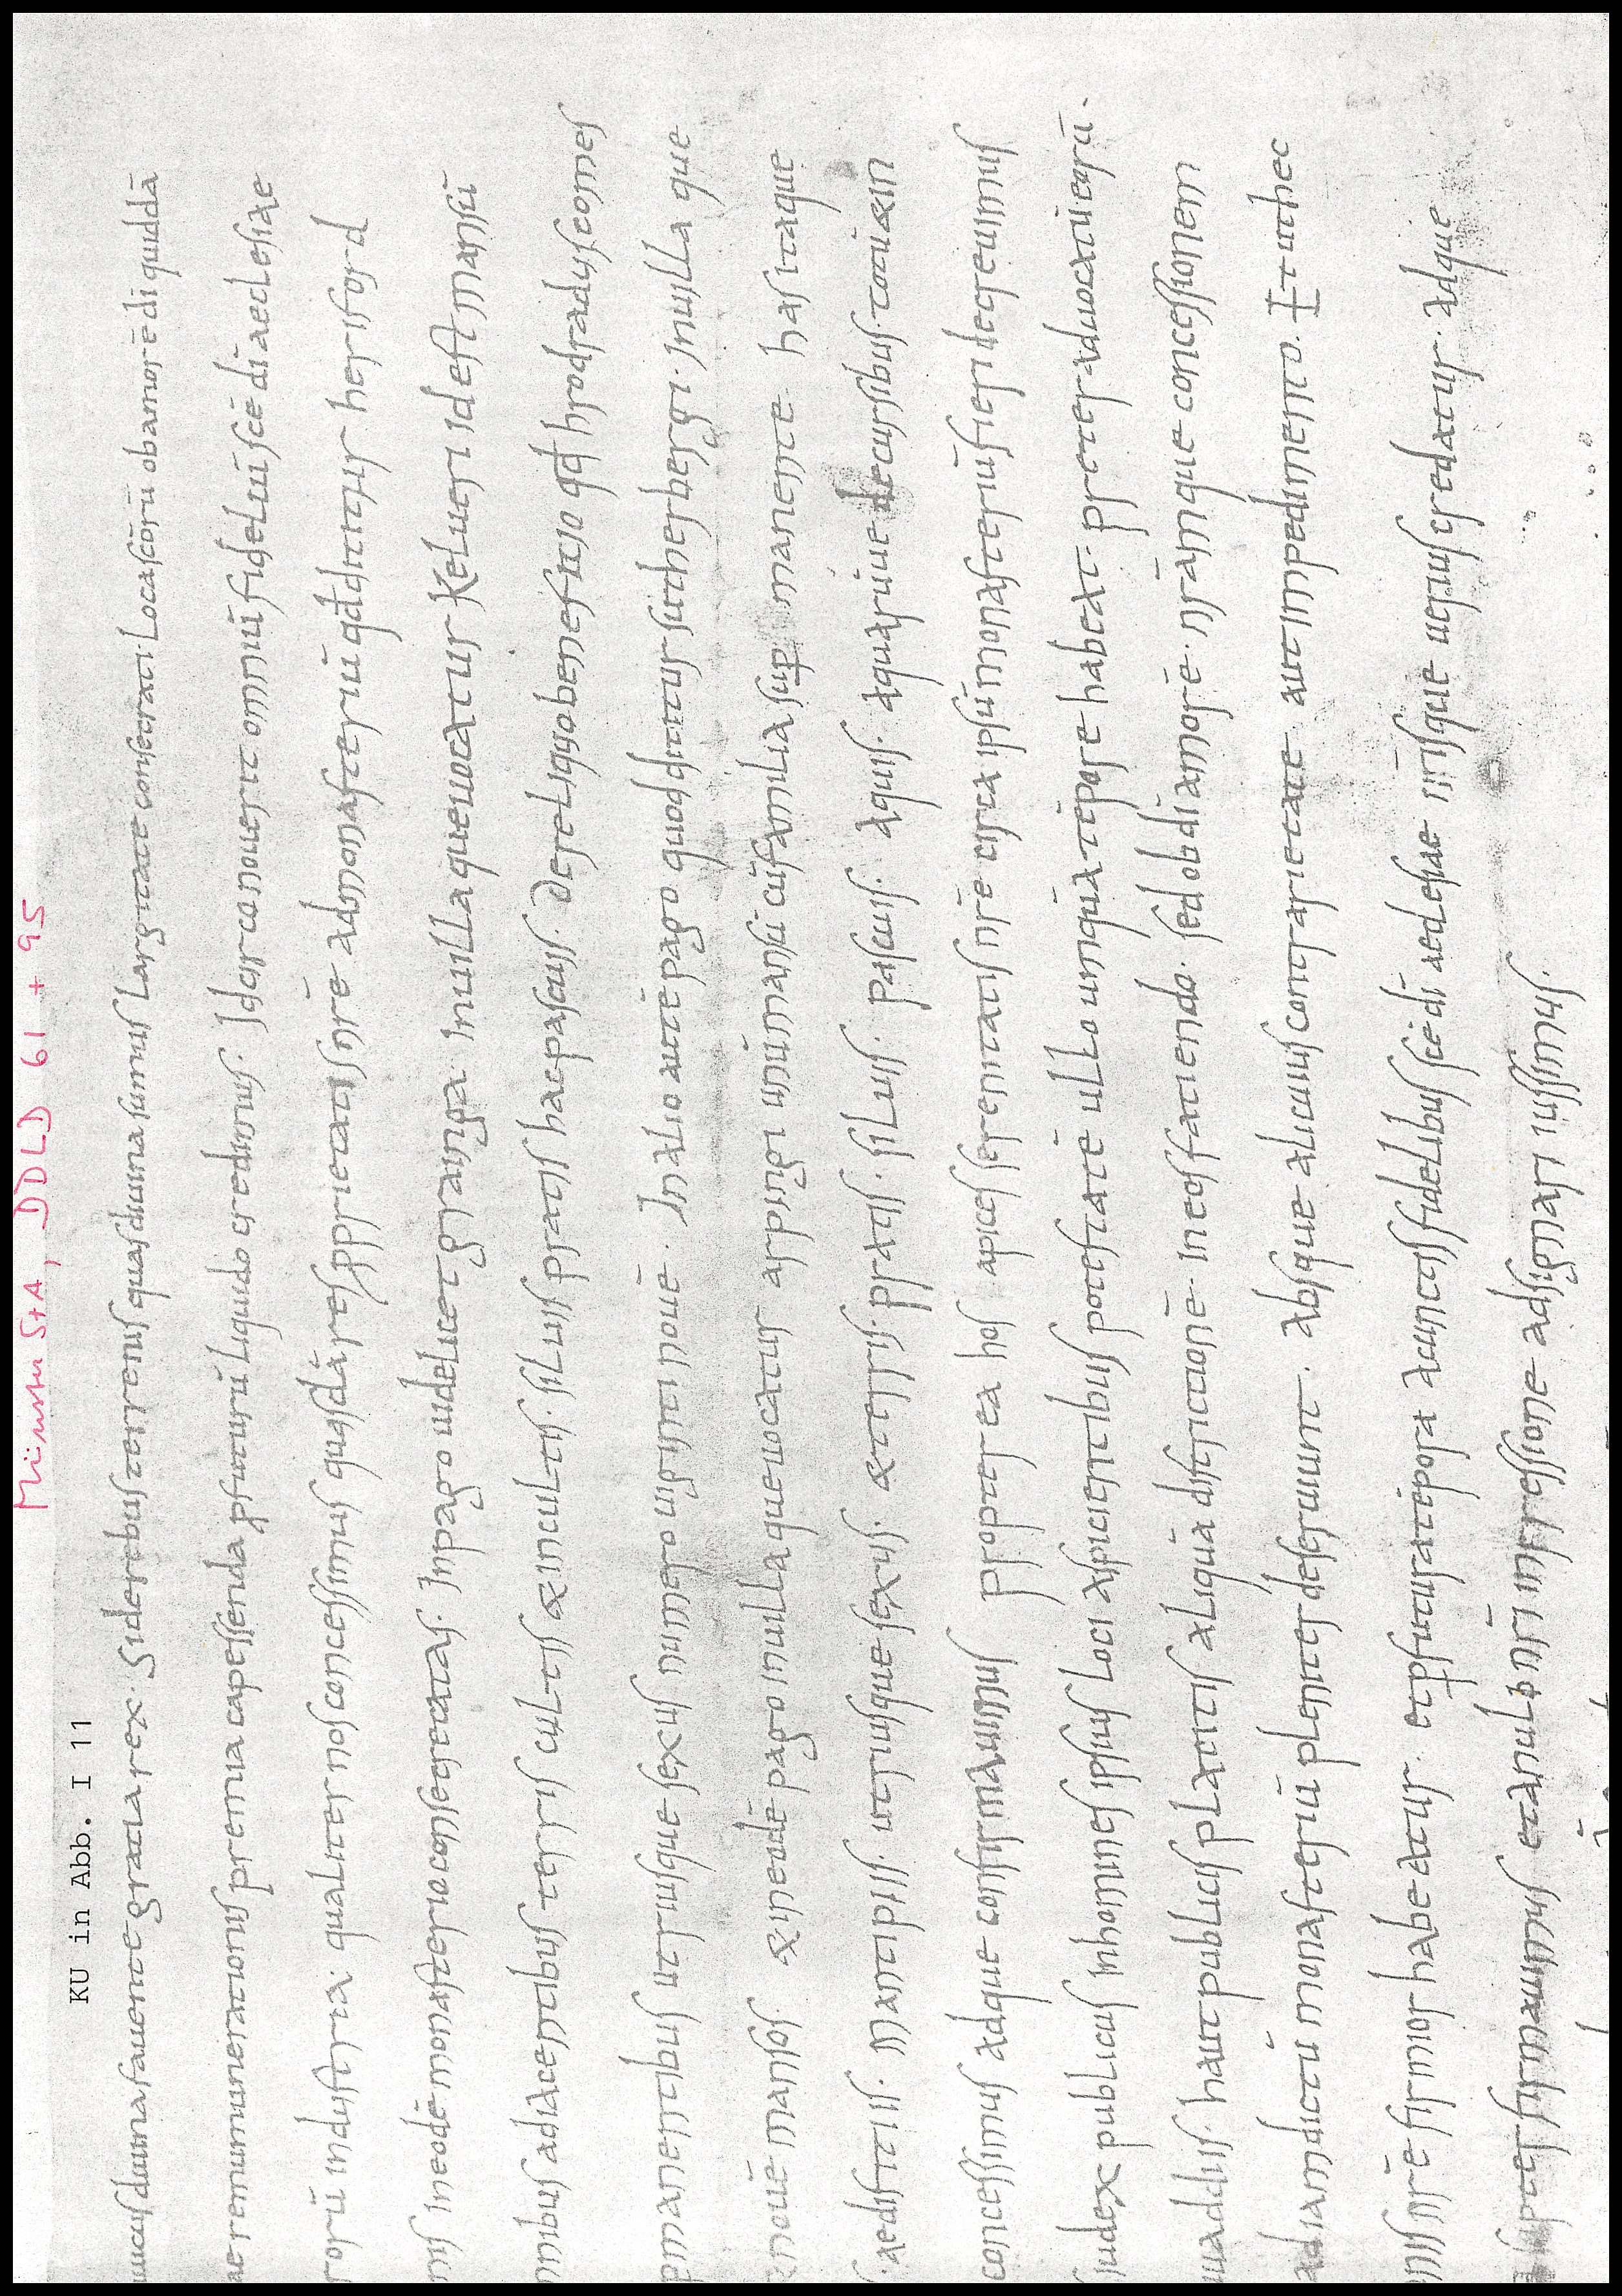 Münster StA, DDLD 61 + 95
KU in Abb. I 11
uuicus diuina fauente gratia rex. Si de rebus terrenis quas diuina sumus largitate consecuti locis sc̄orū ob amorē dī quiddā
ae remunerationis premia capessenda p̱futurū liquido credimus. Idcirco nouerit omniū fideliū sc̄e dī aeclesiae
torū industria. qualiter nos concessimus quasdā res p̱prietatis nr̄e ad monasteriū qđ dicitur herisford
nis in eodē monasterio consecratas. In pago uidelicet grainga in uilla que uocatur Kelueri id est mansū
nibus adiacentibus terris cultis & incultis. siluis pratis hac pascuis. De reliquo beneficio qđ hrodradus comes
pmanentibus utriusque sexus numero uiginti nouē. In alio autē pago quod dicitur sutherbergi. In uilla que
nouē mansos. & in eodē pago in uilla que uocatur arpingi unū mansū cū familia sup̱ manente. has itaque
aedificiis. mancipiis. utriusque sexus. & terris. pratis. siluis. pascuis. aquis. aquarūue decursibus. totū & in
concessimus adque confirmauimus propter ea hos apices serenitatis nr̄e circa ipsū monasteriū fieri decreuimus
iudex publicus in homines ipsius loci aspicientibus potestatē ullo umquā tēpore habeat. preter aduocatū eorū.
uuadiis. haut publicis placitis aliquā districtionē in eos faciendo. sed ob dī amorē. nr̄amque concessionem
ad iam dictū monasteriū pleniter deseruiunt. absque alicuius contrarietate aut impedimento. Et ut hec
nis nr̄e firmior habeatur. et p̱ futura tēpora a cunctis fidelibus sc̄e dī aeclesiae nr̄isque uerius credatur. adque
super firmauimus et anulo nr̄i inpressione adsignari iussimus.